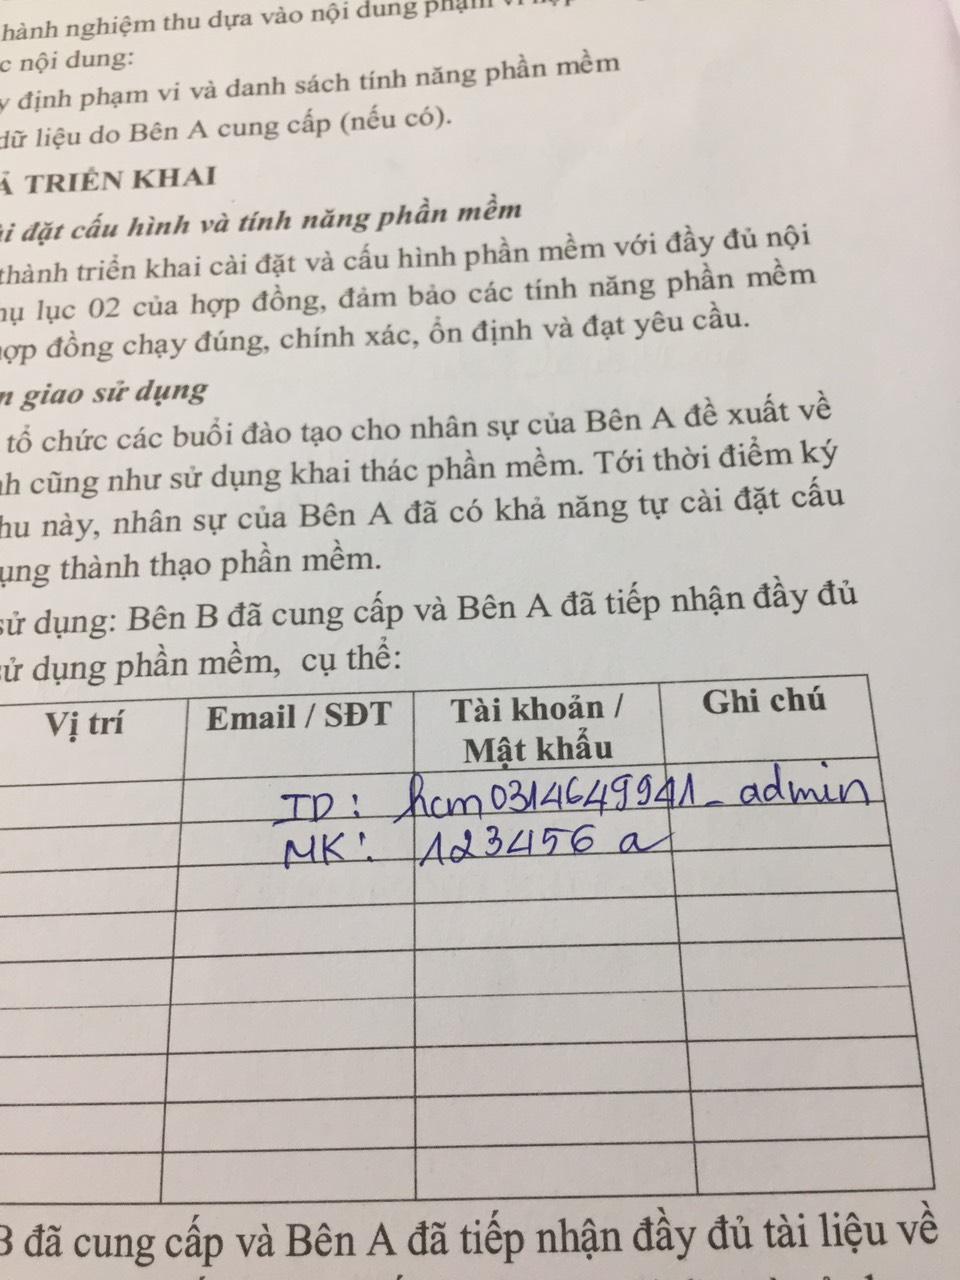 hành nghiệm thu dựa vào nội dung phạm vi
c nội dung:
y định phạm vi và danh sách tính năng phần mềm
dữ liệu do Bên A cung cấp (nếu có).
Ả TRIỂN KHAI
ài đặt cấu hình và tính năng phần mềm
thành triển khai cài đặt và cấu hình phần mềm với đầy đủ nội
hụ lục 02 của hợp đồng, đảm bảo các tính năng phần mềm
hợp đồng chạy đúng, chính xác, ổn định và đạt yêu cầu.
n giao sử dụng
tổ chức các buổi đào tạo cho nhân sự của Bên A đề xuất về
nh cũng như sử dụng khai thác phần mềm. Tới thời điểm ký
thu này, nhân sự của Bên A đã có khả năng tự cài đặt cấu
ụng thành thạo phần mềm.
sử dụng: Bên B đã cung cấp và Bên A đã tiếp nhận đầy đủ
sử dụng phần mềm, cụ thể:
Vị trí Email / SĐT Tài khoản / Ghi chú
Mật khẩu
ID: hcm0314649941_admin
MK: 123456a
B đã cung cấp và Bên A đã tiếp nhận đầy đủ tài liệu về